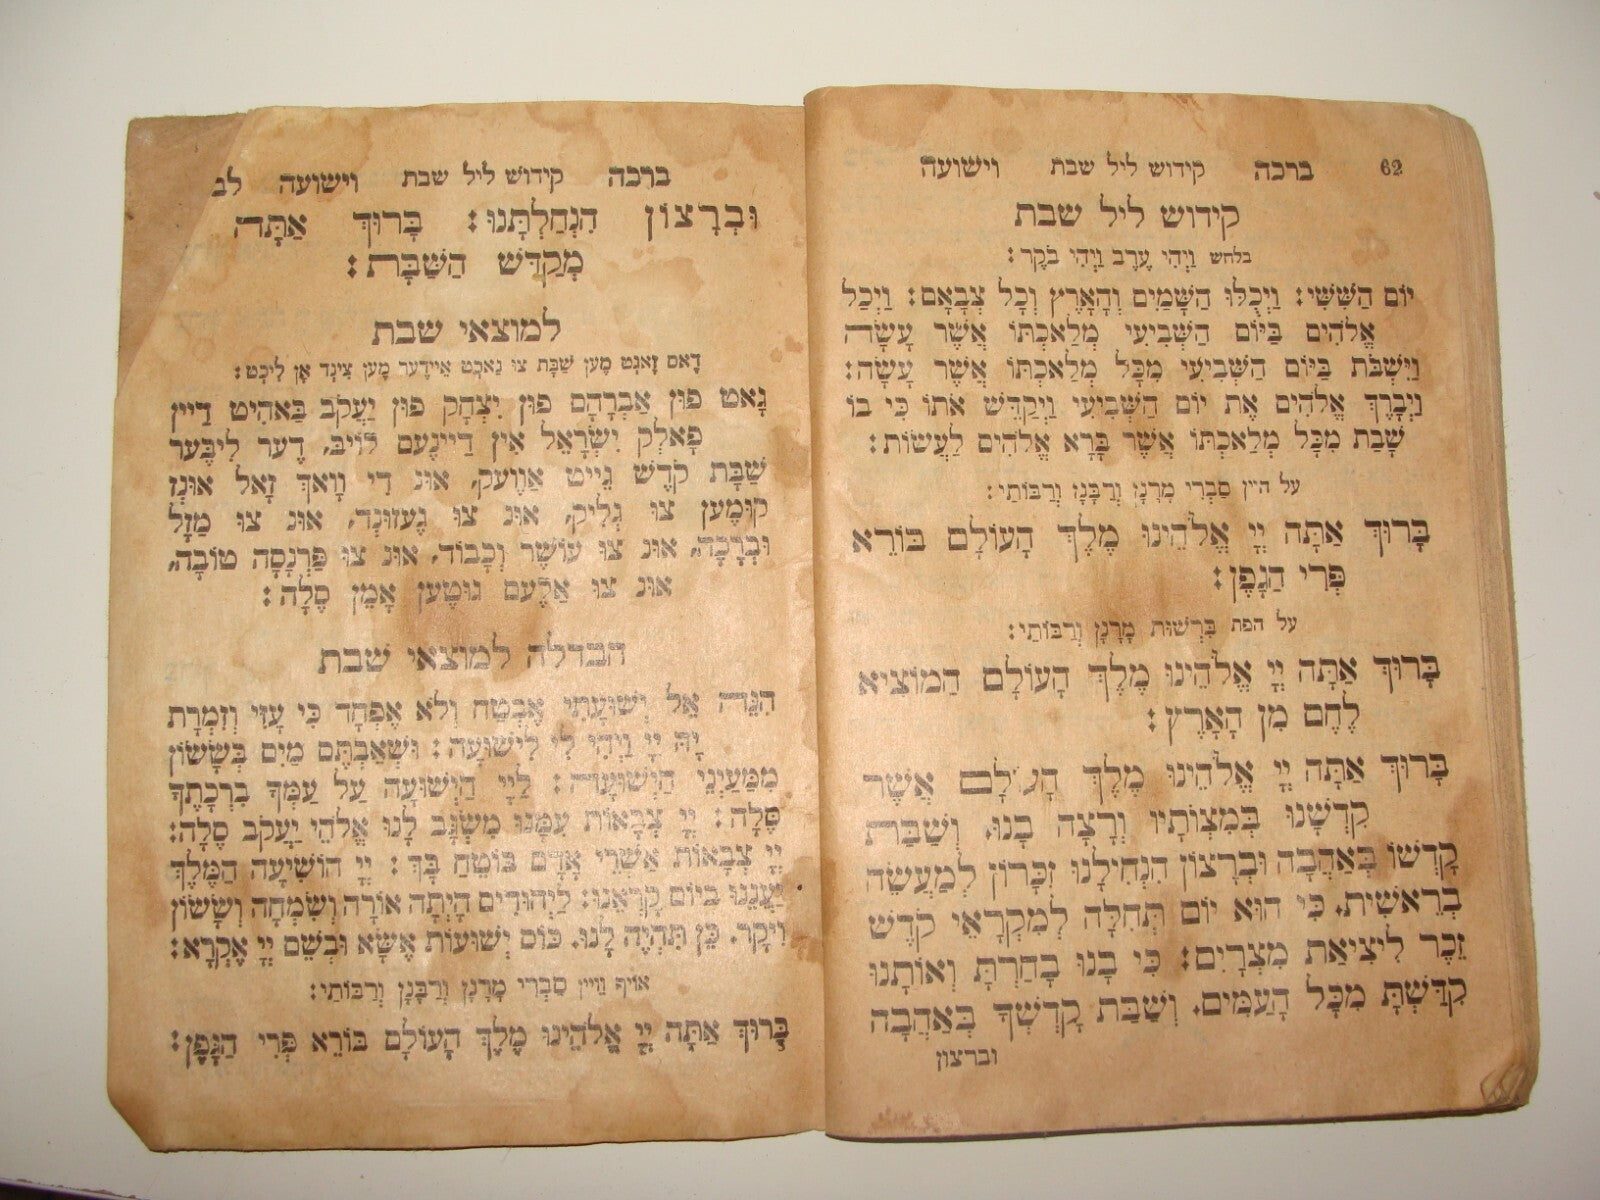 62 ברכה קידוש ליל שבת וישועה
קידוש ליל שבת
בלחש וַיְהִי עֶרֶב וַיְהִי בֹקֶר:
יוֹם הַשִּׁשִּׁי: וַיְכֻלּוּ הַשָּׁמַיִם וְהָאָרֶץ וְכָל צְבָאָם: וַיְכַל
אֱלֹהִים בַּיּוֹם הַשְּׁבִיעִי מְלַאכְתּוֹ אֲשֶׁר עָשָׂה
וַיִּשְׁבֹּת בַּיּוֹם הַשְּׁבִיעִי מִכָּל מְלַאכְתּוֹ אֲשֶׁר עָשָׂה:
וַיְבָרֶךְ אֱלֹהִים אֶת יוֹם הַשְּׁבִיעִי וַיְקַדֵּשׁ אֹתוֹ כִּי בוֹ
שָׁבַת מִכָּל מְלַאכְתּוֹ אֲשֶׁר בָּרָא אֱלֹהִים לַעֲשׂוֹת:
על היין סַבְרִי מָרָנָן וְרַבָּנָן וְרַבּוֹתַי:
בָּרוּךְ אַתָּה יְיָ אֱלֹהֵינוּ מֶלֶךְ הָעוֹלָם בּוֹרֵא
פְּרִי הַגָּפֶן:
על הפת בִּרְשׁוּת מָרָנָן וְרַבּוֹתַי:
בָּרוּךְ אַתָּה יְיָ אֱלֹהֵינוּ מֶלֶךְ הָעוֹלָם הַמּוֹצִיא
לֶחֶם מִן הָאָרֶץ:
בָּרוּךְ אַתָּה יְיָ אֱלֹהֵינוּ מֶלֶךְ הָעוֹלָם אֲשֶׁר
קִדְּשָׁנוּ בְּמִצְוֹתָיו וְרָצָה בָנוּ, וְשַׁבַּת
קָדְשׁוֹ בְּאַהֲבָה וּבְרָצוֹן הִנְחִילָנוּ זִכָּרוֹן לְמַעֲשֵׂה
בְרֵאשִׁית, כִּי הוּא יוֹם תְּחִלָּה לְמִקְרָאֵי קֹדֶשׁ
זֵכֶר לִיצִיאַת מִצְרָיִם: כִּי בָנוּ בָחַרְתָּ וְאוֹתָנוּ
קִדַּשְׁתָּ מִכָּל הָעַמִּים, וְשַׁבַּת קָדְשְׁךָ בְּאַהֲבָה
וברצון
ברכה קידוש ליל שבת וישועה לב
וּבְרָצוֹן הִנְחַלְתָּנוּ: בָּרוּךְ אַתָּה
מְקַדֵּשׁ הַשַּׁבָּת:
למוצאי שבת
דָאס זָאגט מֶען שַׁבָּת צוּ נַאכְט אֵיידֶער מֶען צִינְד אָן לִיכְט:
גָאט פוּן אַבְרָהָם פוּן יִצְחָק פוּן יַעֲקֹב בַּאהִיט דֵיין
פָאלְק יִשְׂרָאֵל אִין דֵיינֶעם לוֹיב, דֶער לִיבֶּער
שַׁבָּת קֹדֶשׁ גֵייט אַוֶועק, אוּנ דִי וָואךְ זָאל אוּנְז
קוּמֶען צוּ גְלִיק, אוּנ צוּ גֶעזוּנְד, אוּנ צוּ מַזָּל
וּבְרָכָה, אוּנ צוּ עוֹשֶׁר וְכָבוֹד, אוּנ צוּ פַּרְנָסָה טוֹבָה,
אוּנ צוּ אַלֶעם גוּטֶען אָמֵן סֶלָה:
הבדלה למוצאי שבת
הִנֵּה אֵל יְשׁוּעָתִי אֶבְטַח וְלֹא אֶפְחָד כִּי עָזִּי וְזִמְרָת
יָהּ יְיָ וַיְהִי לִי לִישׁוּעָה: וּשְׁאַבְתֶּם מַיִם בְּשָׂשׂוֹן
מִמַּעַיְנֵי הַיְשׁוּעָה: לַיְיָ הַיְשׁוּעָה עַל עַמְּךָ בִרְכָתֶךָ
סֶלָה: יְיָ צְבָאוֹת עִמָּנוּ מִשְׂגָּב לָנוּ אֱלֹהֵי יַעֲקֹב סֶלָה:
יְיָ צְבָאוֹת אַשְׁרֵי אָדָם בּוֹטֵחַ בָּךְ: יְיָ הוֹשִׁיעָה הַמֶּלֶךְ
יַעֲנֵנוּ בְיוֹם קָרְאֵנוּ: לַיְּהוּדִים הָיְתָה אוֹרָה וְשִׂמְחָה וְשָׂשׂוֹן
וִיקָר. כֵּן תִּהְיֶה לָנוּ, כּוֹס יְשׁוּעוֹת אֶשָּׂא וּבְשֵׁם יְיָ אֶקְרָא:
אוֹיף וֵויין סַבְרִי מָרָנָן וְרַבָּנָן וְרַבּוֹתַי:
בָּרוּךְ אַתָּה יְיָ אֱלֹהֵינוּ מֶלֶךְ הָעוֹלָם בּוֹרֵא פְּרִי הַגָּפֶן: